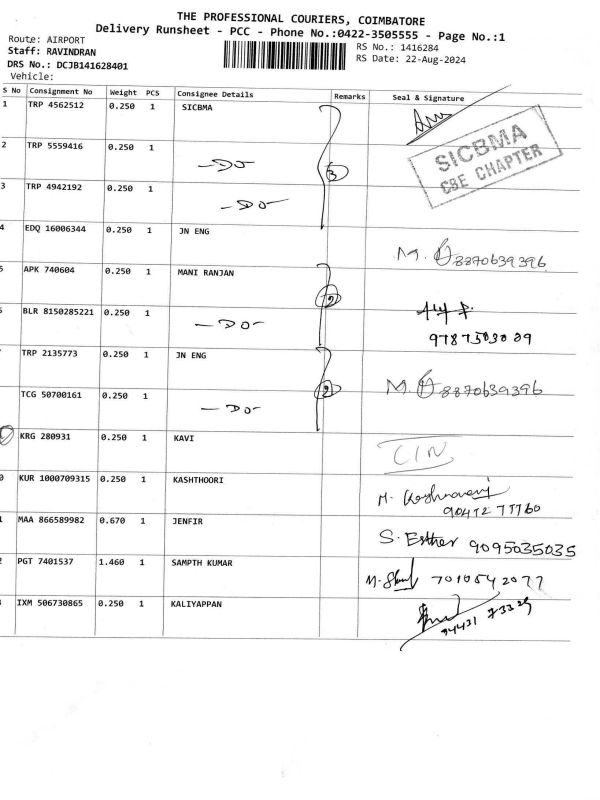 THE PROFESSIONAL COURIERS, COIMBATORE
Delivery Runsheet - PCC - Phone No.:0422-3505555 - Page No.:1
Route: AIRPORT
Staff: RAVINDRAN
DRS No.: DCJB141628401
Vehicle:
RS No.: 1416284
RS Date: 22-Aug-2024
S No Consignment No Weight PCS Consignee Details Remarks Seal & Signature
1 TRP 4562512 0.250 1 SICBMA
2 TRP 5559416 0.250 1 -DO-
SICBMA
CBE CHAPTER
3 TRP 4942192 0.250 1 -DO-
3
4 EDQ 16006344 0.250 1 JN ENG M. 8870639396
5 APK 740604 0.250 1 MANI RANJAN
2
BLR 8150285221 0.250 1 -DO-
TRP 2135773 0.250 1 JN ENG M. 8870639396
2
TCG 50700161 0.250 1 -DO-
KRG 280931 0.250 1 KAVI CIN
0 KUR 1000709315 0.250 1 KASHTHOORI
1 MAA 866589982 0.670 1 JENFIR S. Esther 9095035035
2 PGT 7401537 1.460 1 SAMPTH KUMAR 7010542077
IXM 506730865 0.250 1 KALIYAPPAN